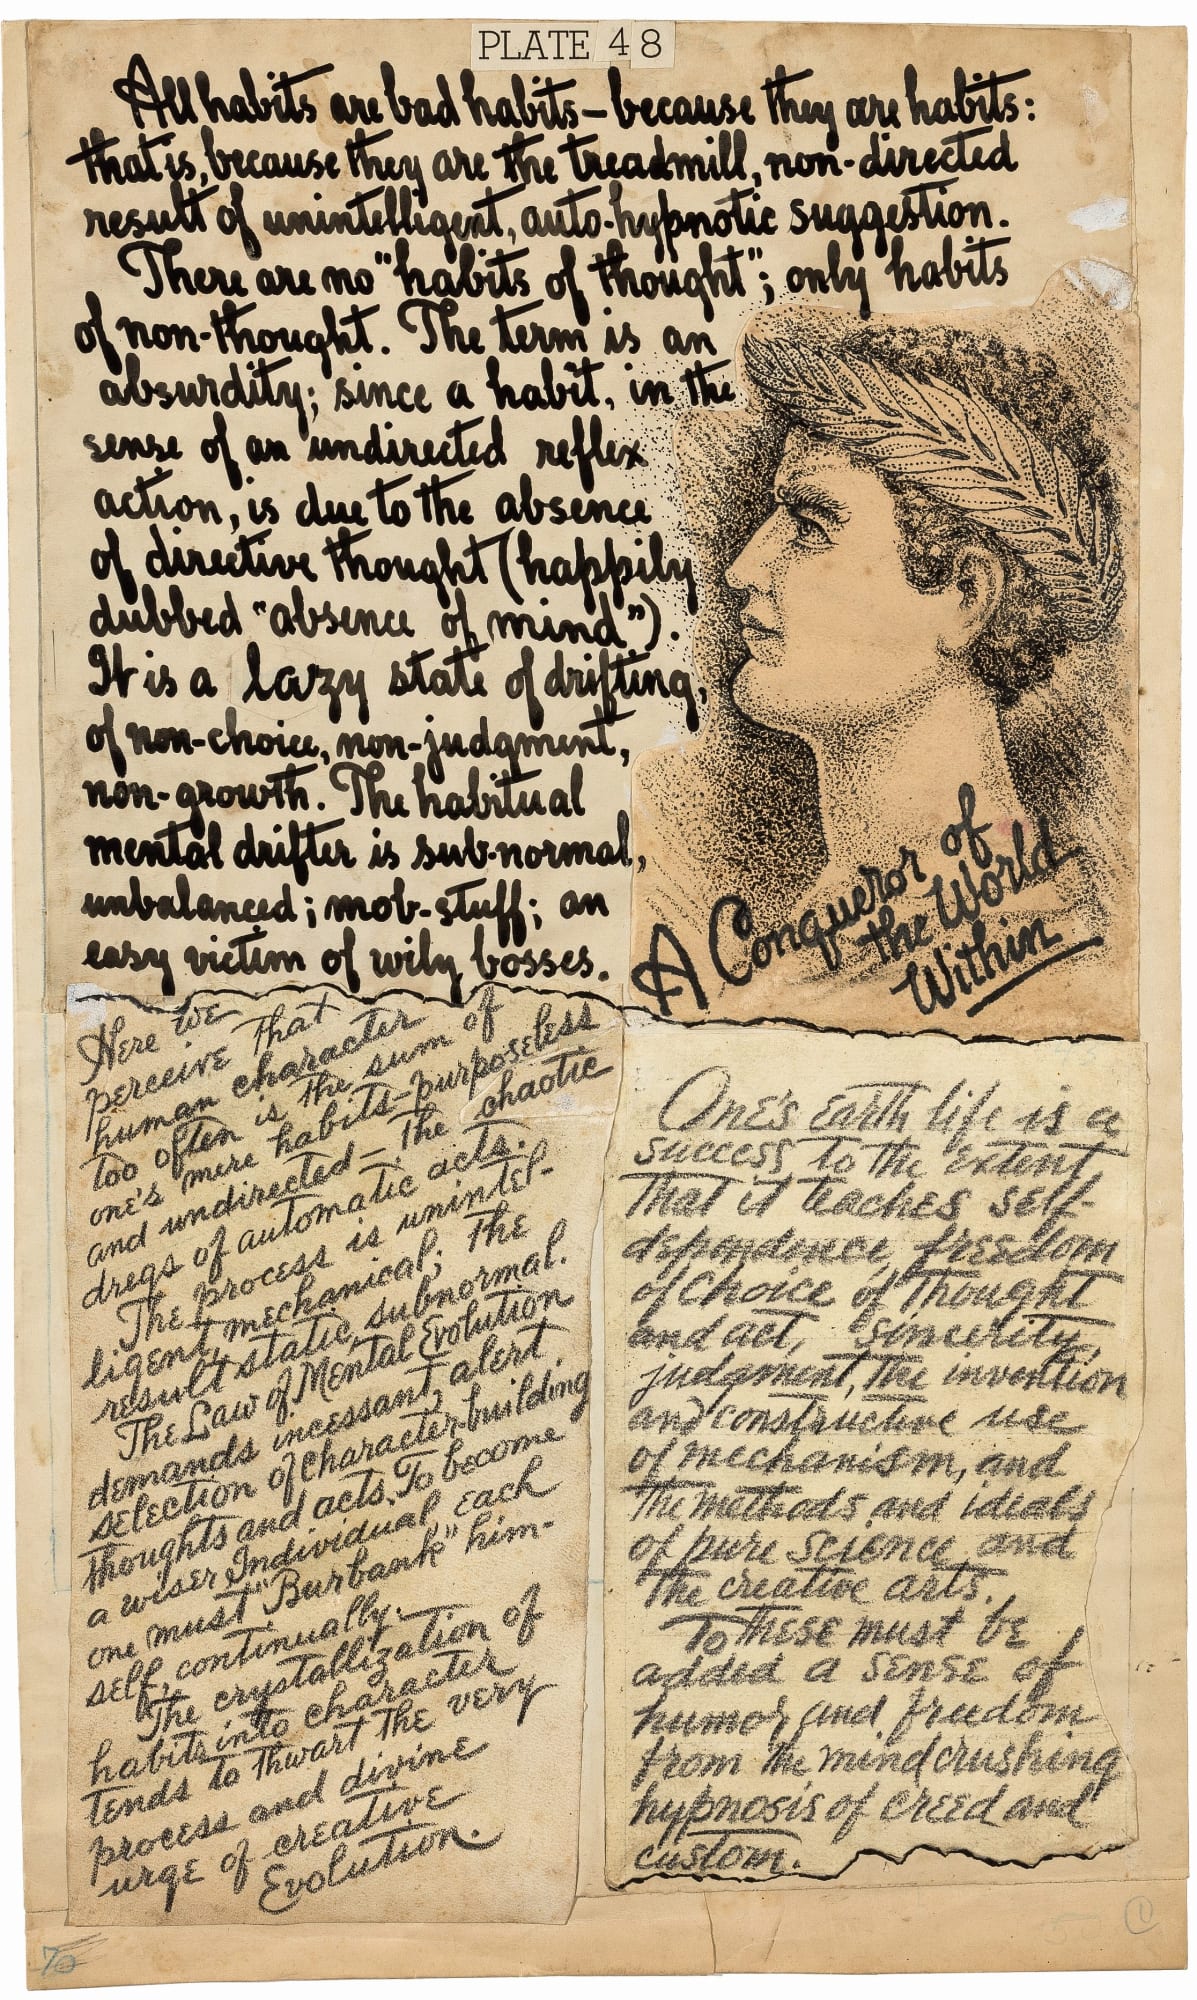 PLATE 48
All habits are bad habits – because they are habits:
that is, because they are the treadmill, non-directed
result of unintelligent, auto-hypnotic suggestion.
There are no "habits of thought"; only habits
of non-thought. The term is an
absurdity; since a habit, in the
sense of an undirected reflex
action, is due to the absence
of directive thought (happily
dubbed "absence of mind").
It is a lazy state of drifting,
of non-choice, non-judgment,
non-growth. The habitual
mental drifter is sub-normal,
unbalanced; mob-stuff; an
easy victim of wily bosses.
A Conqueror of
the World
Within
Here we
perceive that
human character
too often is the sum of
one's mere habits–purposeless
and undirected – the chaotic
dregs of automatic acts.
The process is unintel-
ligent, mechanical; the
result static, subnormal.
The Law of Mental Evolution
demands incessant, alert
selection of character-building
thoughts and acts. To become
a wiser Individual, each
one must "Burbank" him-
self, continually.
The crystallization of
habits into character
tends to thwart the very
process and divine
urge of creative
Evolution.
One's earth life is a
success to the extent
that it teaches self-
dependence, freedom
of choice of thought
and act, sincerity,
judgment, the invention
and constructive use
of mechanism, and
the methods and ideals
of pure science and
the creative arts.
To these must be
added a sense of
humor and freedom
from the mindcrushing
hypnosis of creed and
custom.
70
50 1